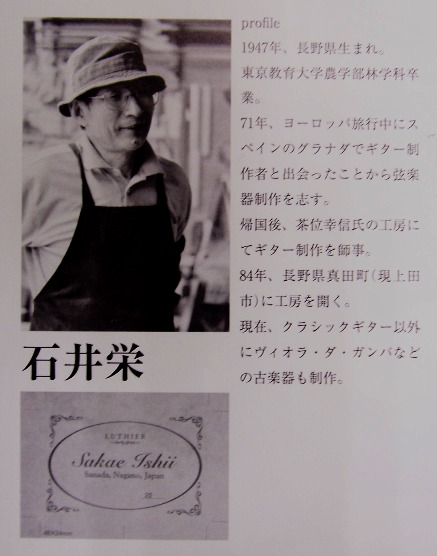 profile
1947年、長野県生まれ。
東京教育大学農学部林学科卒
業。
71年、ヨーロッパ旅行中にス
ペインのグラナダでギター制
作者と出会ったことから弦楽
器制作を志す。
帰国後、茶位幸信氏の工房に
てギター制作を師事。
84年、長野県真田町(現上田
市)に工房を開く。
現在、クラシックギター以外
にヴィオラ・ダ・ガンバなど
の古楽器も制作。
石井栄
LUTHIER
Sakae Ishii
Sanada, Nagano, Japan
20